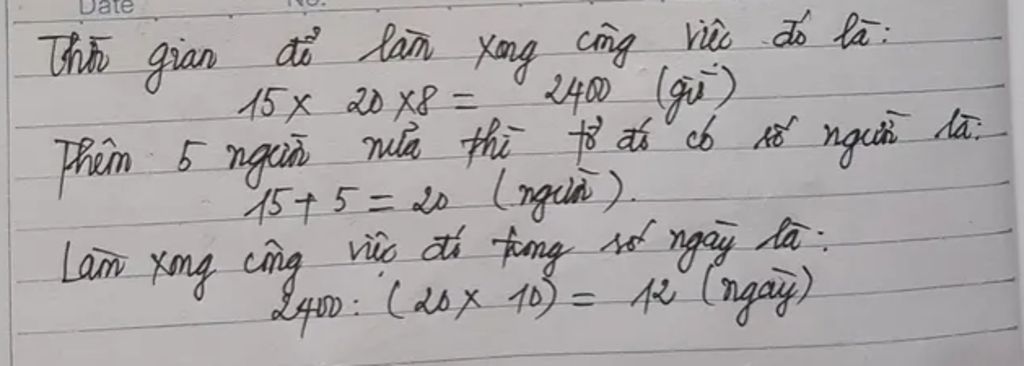 Date No.
Thời gian để làm xong công việc đó là:
15 x 20 x 8 = 2400 (giờ)
Thêm 5 người nữa thì tổ đó có số người là:
15 + 5 = 20 (người).
Làm xong công việc đó trong số ngày là:
2400 : (20 x 10) = 12 (ngày)